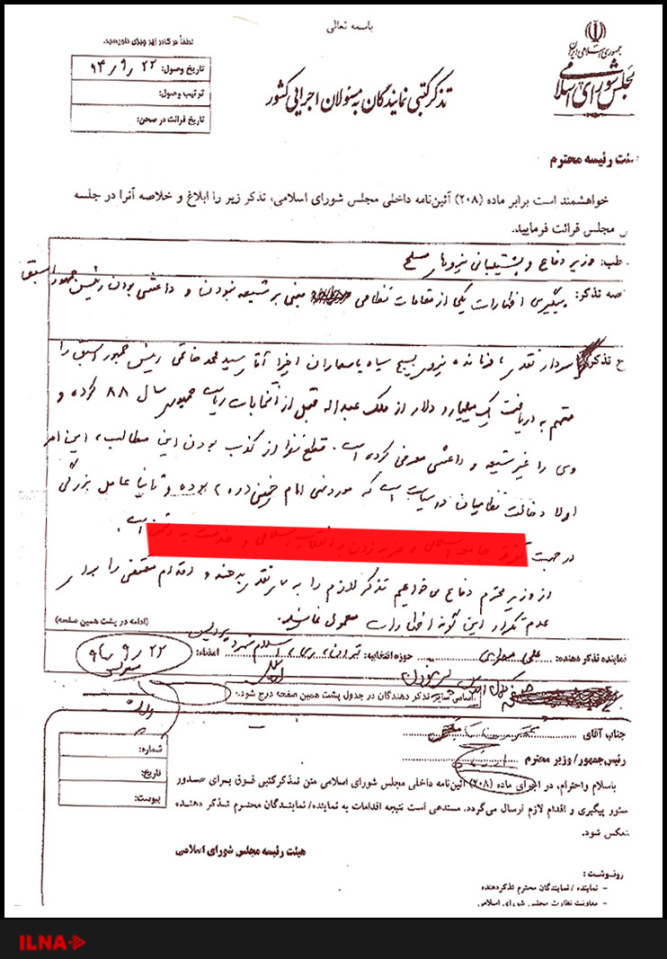 باسمه تعالی
جمهوری اسلامی ایران
مجلس شورای اسلامی
لطفاً در کادر زیر چیزی ننویسید.
تاریخ وصول: ۹۴/۹/۲۲
ترتیب وصول:
تاریخ قرائت در صحن:
تذکر کتبی نمایندگان به مسئولان اجرایی کشور
هیئت رئیسه محترم
خواهشمند است برابر ماده (۲۰۸) آئین‌نامه داخلی مجلس شورای اسلامی، تذکر زیر را ابلاغ و خلاصه آنرا در جلسه
مجلس قرائت فرمایید.
طب: وزیر دفاع و پشتیبانی نیروهای مسلح
صه تذکر: پیگیری اظهارات یکی از مقامات نظامی مبنی بر شیعه نبودن و داعشی بودن رئیس جمهور اسبق
ح تذکر: سردار نقدی فرمانده نیروی بسیج سپاه پاسداران اخیرا آقای سید محمد خاتمی رئیس جمهور اسبق را
متهم به دریافت یک میلیارد دلار از ملک عبداله قبل از انتخابات ریاست جمهوری سال ۸۸ کرده و
وی را غیر شیعه و داعشی معرفی کرده است. قطع نظر از کذب بودن این مطالب، این امر
اولا دخالت نظامیان در سیاست است که مورد نهی امام خمینی (ره) بوده و ثانیا عامل بزرگی
در جهت
است.
از وزیر محترم دفاع می‌خواهم تذکر لازم را به سردار نقدی بدهند و اقدام مقتضی را برای
عدم تکرار این گونه اظهارات معمول نمایند.
(ادامه در پشت همین صفحه)
نماینده تذکر دهنده: علی مطهری حوزه انتخابیه: تهران، ری، اسلامشهر و پردیس امضاء: ۹۴/۹/۲۲
اسامی سایر تذکر دهندگان در جدول پشت همین صفحه درج شود.
جناب آقای
رئیس‌جمهور/ وزیر محترم
شماره:
تاریخ:
پیوست:
باسلام واحترام، در اجرای ماده (۲۰۸) آئین‌نامه داخلی مجلس شورای اسلامی متن تذکرکتبی فوق برای صدور
ستور پیگیری و اقدام لازم ارسال می‌گردد. مستدعی است نتیجه اقدامات به نماینده/ نمایندگان محترم تذکر دهنده
منعکس شود.
هیئت رئیسه مجلس شورای اسلامی
رونوشت:
– نماینده / نمایندگان محترم تذکردهنده
– معاونت نظارت مجلس شورای اسلامی
ILNA